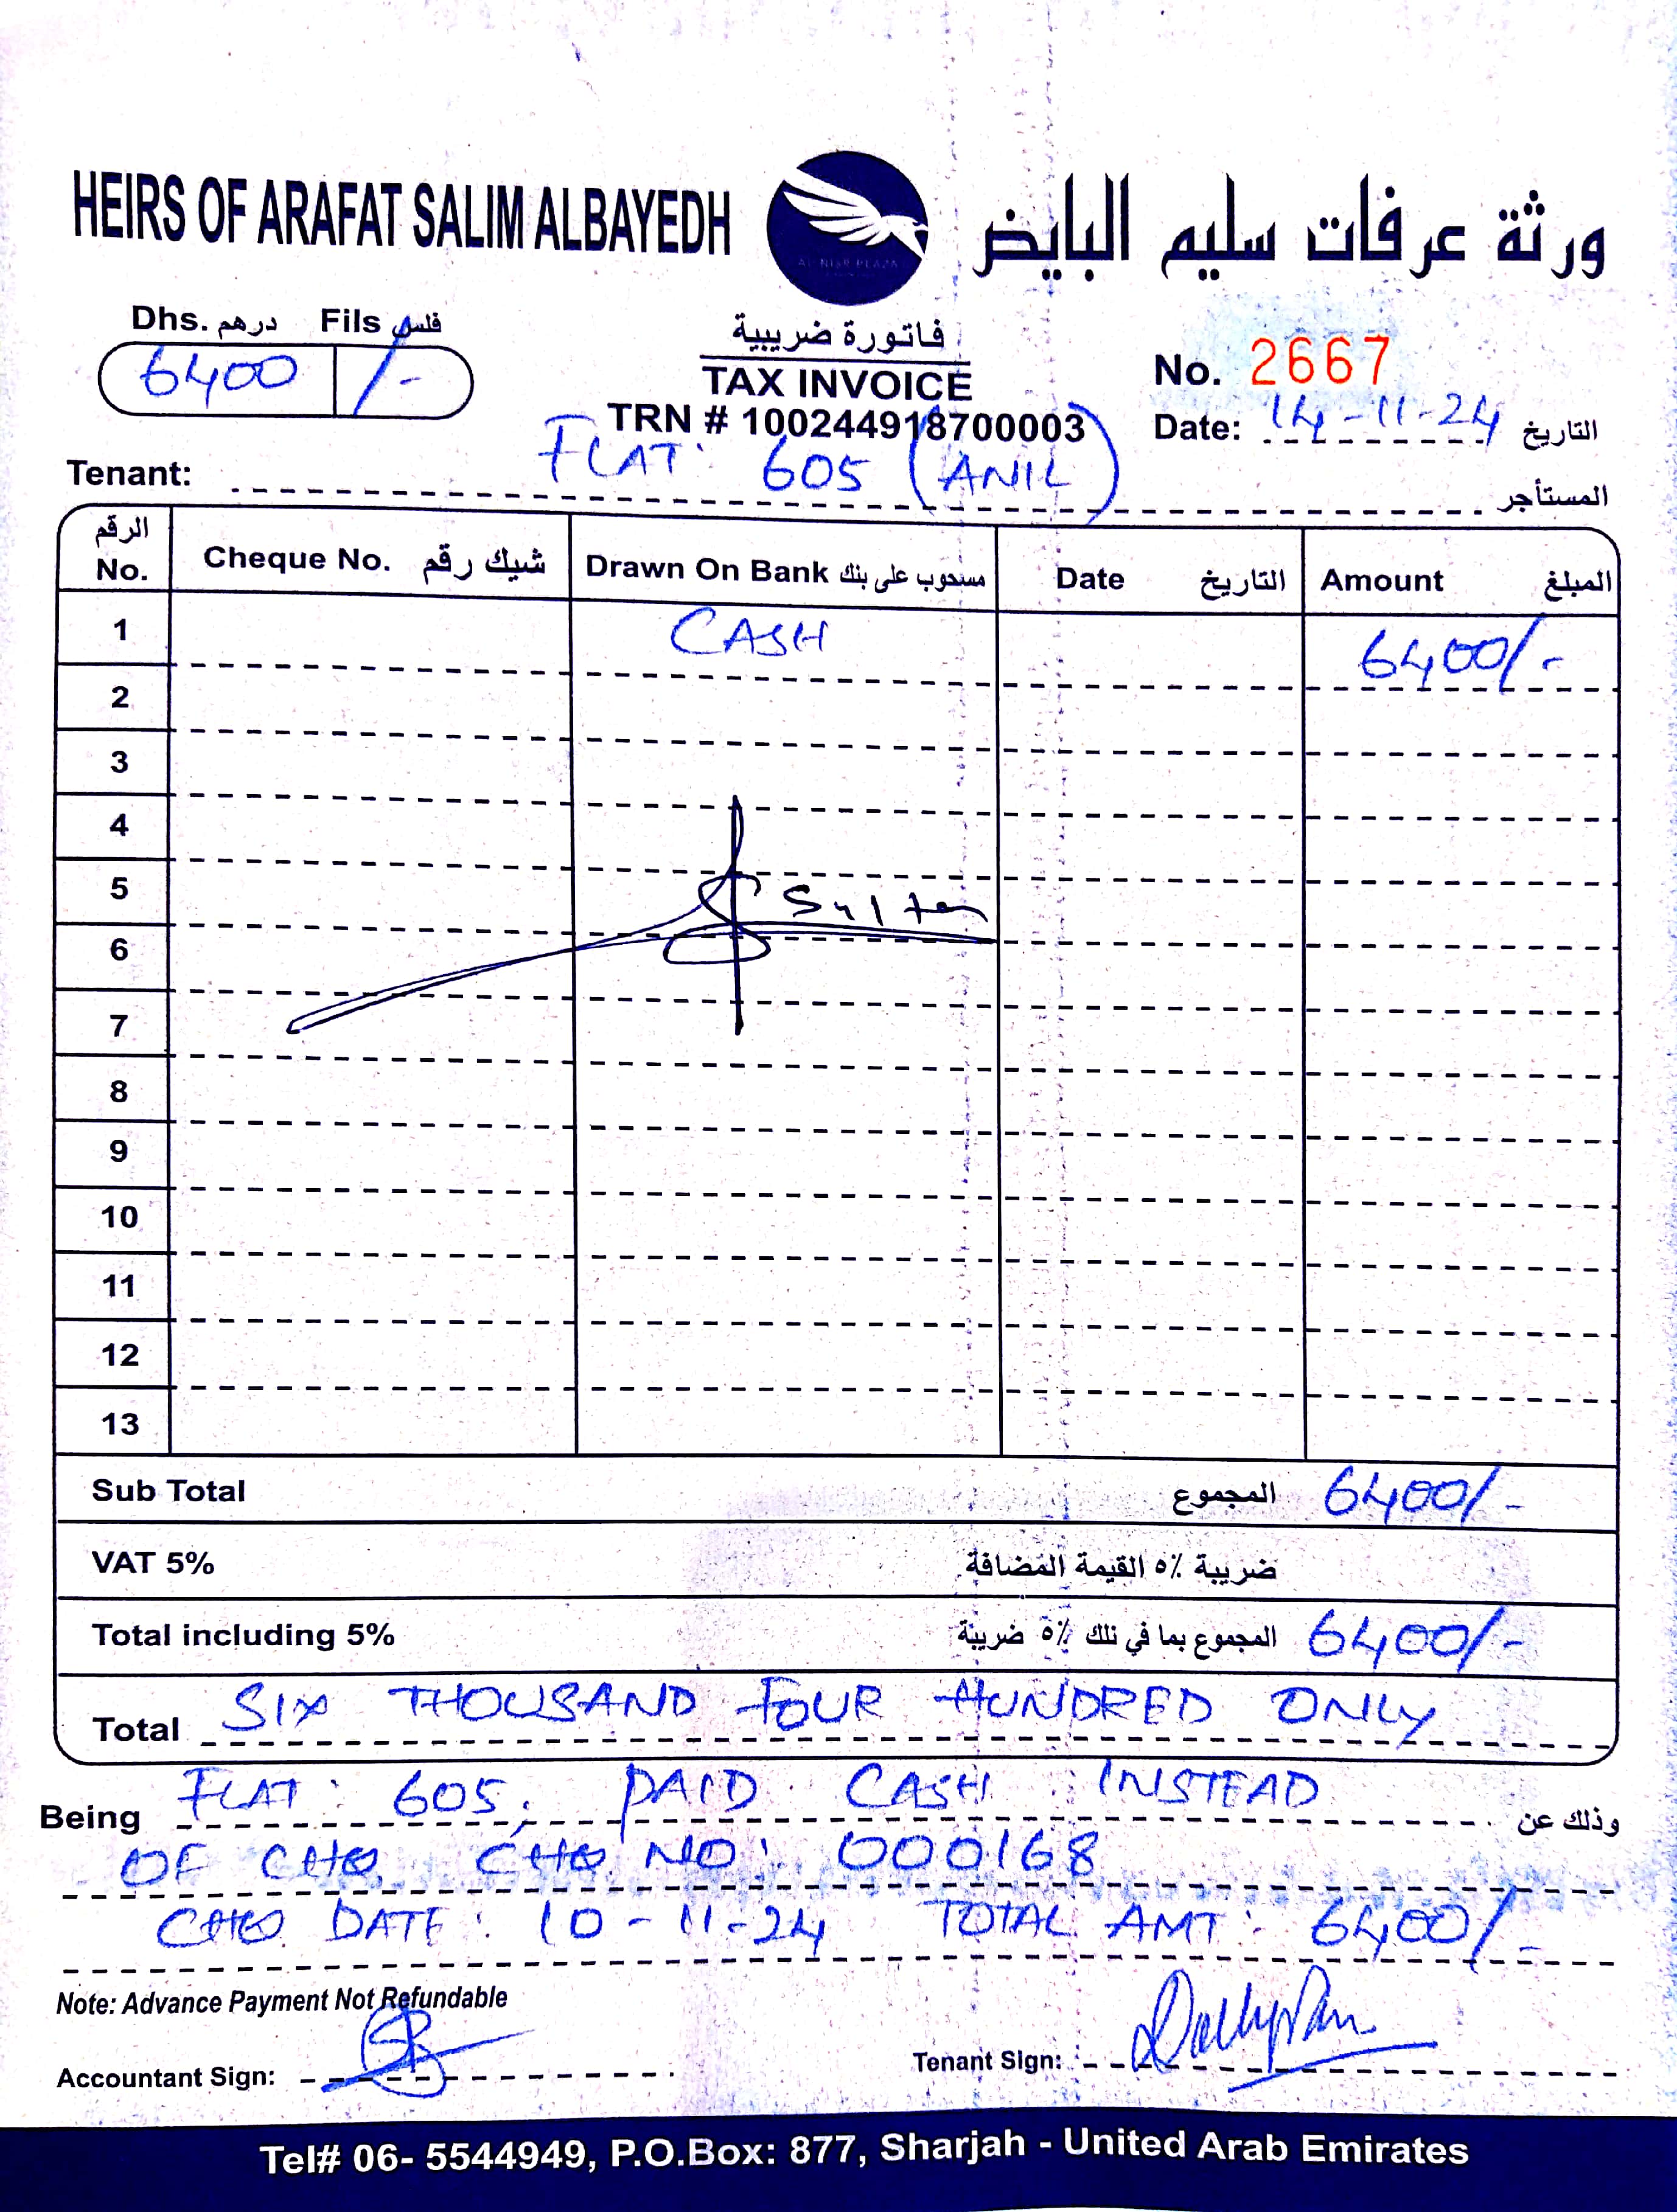 HEIRS OF ARAFAT SALIM ALBAYEDH
ورثة عرفات سليم البايض
AL NISR PLAZA
Dhs. درهم Fils فلس
6400 /-
فاتورة ضريبية
TAX INVOICE
TRN # 100244918700003
No. 2667
Date: 14-11-24 التاريخ
Tenant: FLAT: 605 (ANIL) المستأجر
الرقم No. Cheque No. شيك رقم Drawn On Bank مسحوب على بنك Date التاريخ Amount المبلغ
1 CASH 6400/-
2
3
4
5 Sultan
6
7
8
9
10
11
12
13
Sub Total المجموع 6400/-
VAT 5% ضريبة ٥٪ القيمة المضافة
Total including 5% المجموع بما في ذلك ٥٪ ضريبة 6400/-
Total SIX THOUSAND FOUR HUNDRED ONLY
Being FLAT: 605, PAID CASH INSTEAD وذلك عن
OF CHQ. CHQ. NO: 000168
CHQ. DATE: 10-11-24 TOTAL AMT: 6400/-
Note: Advance Payment Not Refundable
Accountant Sign: Tenant Sign:
Tel# 06- 5544949, P.O.Box: 877, Sharjah - United Arab Emirates